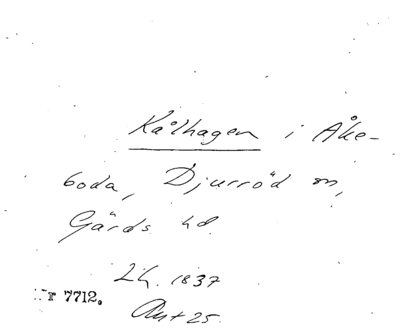 Kålhagen i Åke-
boda, Djurröd sn,
Gärds hd.
Lh. 1837
Akt 25.
Nr 7712.